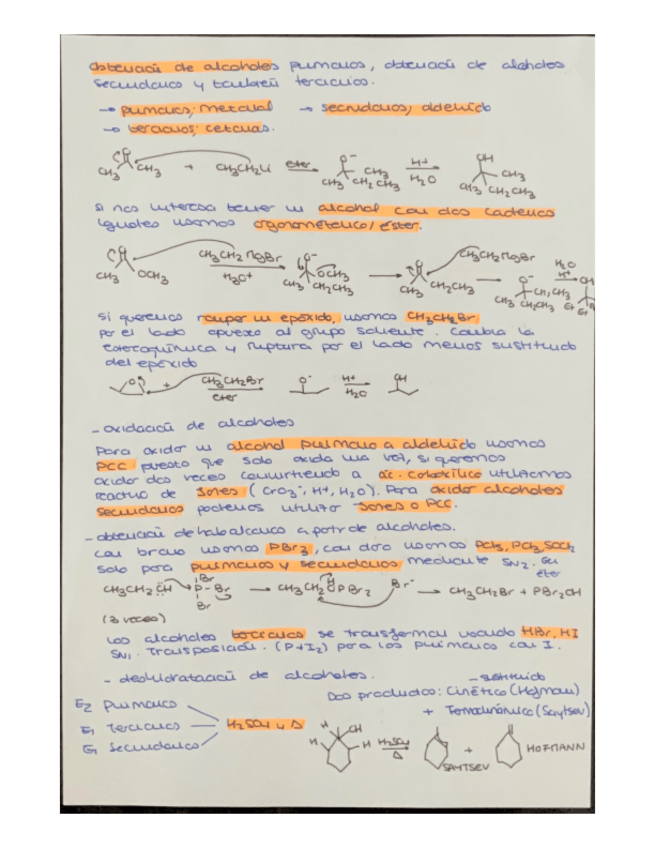 obtención de alcoholes primarios, obtención de alcoholes
secundarios y también terciarios.
→ primarios; metanal → secundarios; aldehido
→ terciarios; cetonas.
CH3 O CH3 + CH3CH2Li eter O- CH3 CH3 CH2CH3 H+ H2O OH CH3 CH3 CH2CH3
si nos interesa tener un alcohol con dos cadenas
iguales usamos organometálico/éster.
CH3 O OCH3 CH3CH2MgBr H3O+ O- OCH3 CH3 CH2CH3 O CH3 CH2CH3 CH3CH2MgBr O- CH3 CH2CH3 H2O H+ OH CH3 Et Et
Si queremos romper un epóxido, usamos CH3CH2Br
por el lado opuesto al grupo saliente. Cambia la
estereoquímica y ruptura por el lado menos sustituido
del epóxido
O + CH3CH2Br eter O- H+ H2O OH
- oxidación de alcoholes
Para oxidar un alcohol primario a aldehido usamos
PCC puesto que solo oxida una vez, si queremos
oxidar dos veces convirtiendo a ác. carboxílico utilizamos
reactivo de Jones (CrO3-, H+, H2O). Para oxidar alcoholes
secundarios podemos utilizar Jones o PCC.
- obtención de haloalcanos a partir de alcoholes.
con bromo usamos PBr3, con cloro usamos PCl5, PCl3, SOCl2
solo para primarios y secundarios mediante SN2. En
éter
CH3CH2OH Br P-Br Br → CH3CH2OPBr2 H Br- → CH3CH2Br + PBr2OH
(3 veces)
Los alcoholes terciarios se transforman usando HBr, HI
SN1. Trasposición. (P+I2) para los primarios con I.
- deshidratación de alcoholes.
- sustituido
Dos productos: Cinético (Hofmann)
+ Termodinámico (Saytsev)
E2 primarios
E1 Terciarios H2SO4 y Δ
E1 Secundarios
H OH H H H2SO4 Δ SAYTSEV + HOFMANN